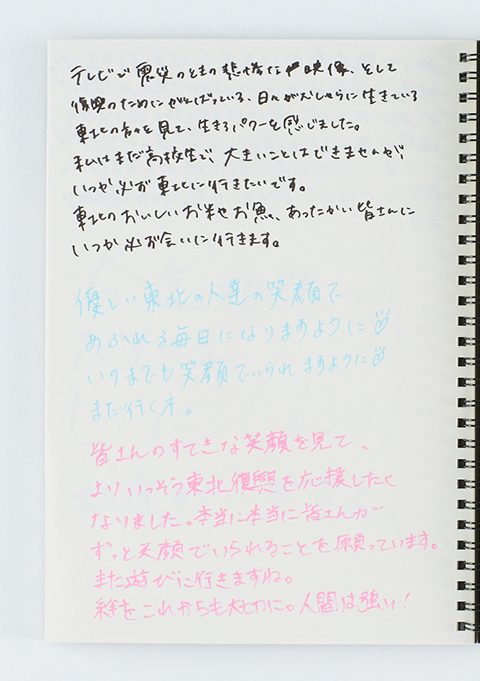 テレビで震災のときの悲惨な映像、そして
復興のためにがんばっている、日々がむしゃらに生きている
東北の方々を見て、生きるパワーを感じました。
私はまだ高校生で、大きいことはできませんが、
いつか必ず東北に行きたいです。
東北のおいしいお米やお魚、あったかい皆さんに
いつか必ずお会いに行きます。
優しい東北の人達の笑顔で
あふれる毎日になりますように
いつまでも笑顔でいられますように
また行く
皆さんのすてきな笑顔を見て、
よりいっそう東北復興を応援したく
なりました。本当に本当に皆さんが
ずっと笑顔でいられることを願っています。
また遊びに行きますね。
絆をこれからも大切に。人間は強い！